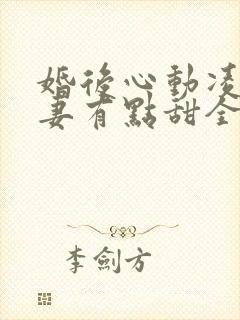 婚後心動凌
妻有點甜全
李劍方